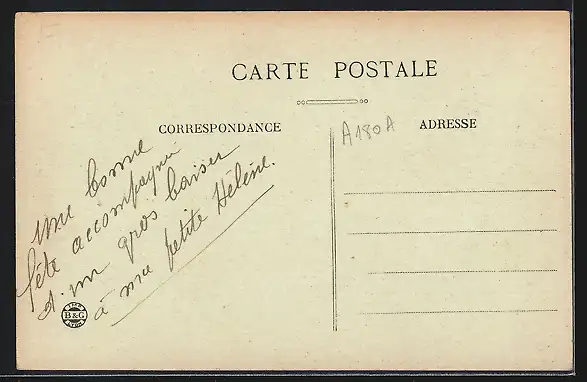 CARTE POSTALE
CORRESPONDANCE
A180A
ADRESSE
une bonne
fête accompagnée
d'un gros baiser
à ma petite Hélène.
IMP.
B&G
LYON